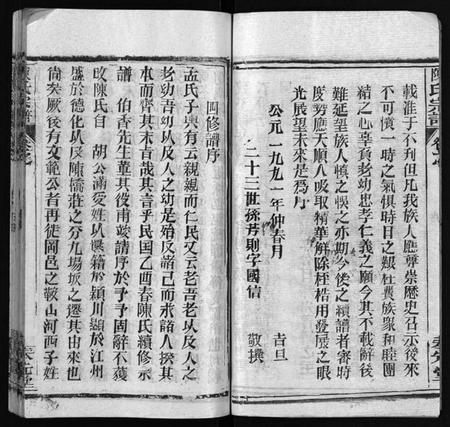 陳氏宗譜
載准于不刊但凡我族人應尊崇歷史召示後來
不可憤一時之氣惧時日之艱杜費族衆和睦團
結之心辜負老幼忠孝仁義之願今其不載辭後
難延望族人慎之悞之亦期今後之續譜者審時
度势應天順人吸取精華解除桎梏用發展之眼
光展望未來是為序
公元一九九一年仲春月 吉旦
二十二世孫芳則字國信 敬撰
四修譜序
孟氏子輿有云親親而仁民又云老吾老以及人之
老幼吾幼以及人之幼是殆反諸己而求諸人揆其
本而齊其末者哉其言乎民国乙酉春陳氏續修宗
譜 伯香先生董其役甫竣請序於予予固辭不獲
攷陳氏自 胡公滿受姓以嬀籍於潁川顯於江州
盛於德化以及陳懦莊之分九場坂之遷其由來也
尚矣厥後有文範公者再徙岡邑之鞍山河西子姓